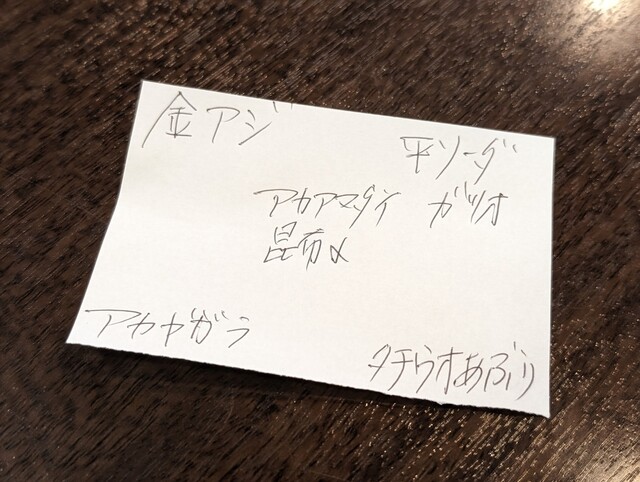 金アジ
平ソーダ
ガツオ
アカアマダイ
昆布〆
アカヤガラ
タチウオあぶり